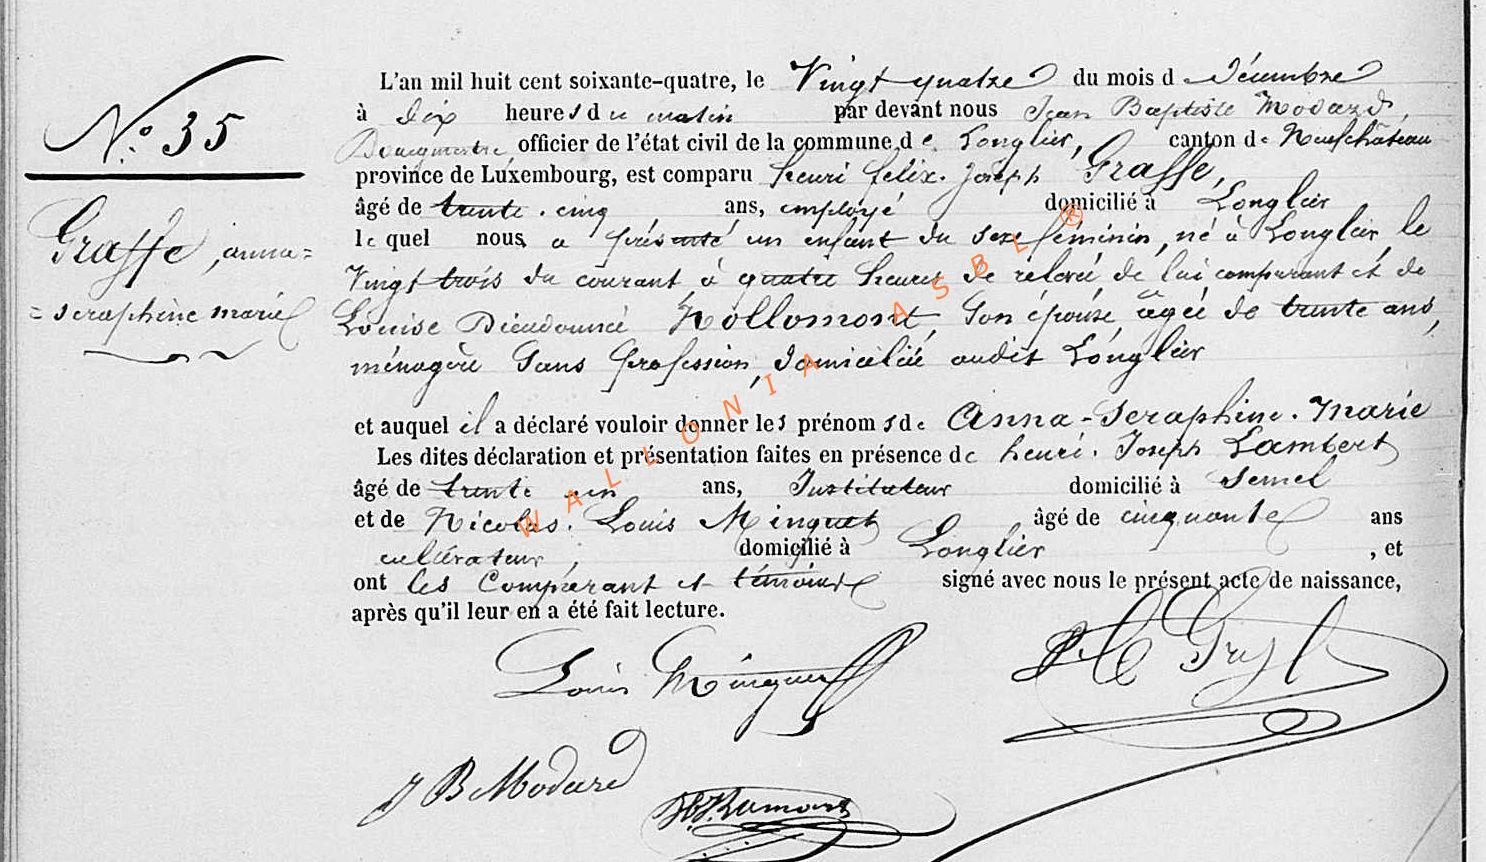 N° 35
Graffe, anna=
=seraphine marie
L'an mil huit cent soixante-quatre, le Vingt quatre du mois d décembre
à dix heures du matin par devant nous Jean Baptiste Modard,
Bourgmestre officier de l'état civil de la commune de Longlier, canton de Neufchâteau
province de Luxembourg, est comparu henri felix. Joseph Graffe,
âgé de trente. cinq ans, employé domicilié à Longlier
le quel nous a présenté un enfant du sexe féminin, né à Longlier, le
Vingt trois du courant à quatre heures de relevée, de lui comparant et de
Louise Dieudonnée Hollomont, son épouse, agée de trente ans,
ménagère sans profession, domiciliée audit Longlier
et auquel il a déclaré vouloir donner les prénoms de Anna-Seraphine. Marie
Les dites déclaration et présentation faites en présence de henri. Joseph Lambert
âgé de trente un ans, Instituteur domicilié à Semel
et de Nicolas. Louis Minguet âgé de cinquante ans
cultivateur, domicilié à Longlier, et
ont les Comparant et témoins signé avec nous le présent acte de naissance,
après qu'il leur en a été fait lecture.
Louis Minguet
J B Modard
WALLONIA ASBL ®